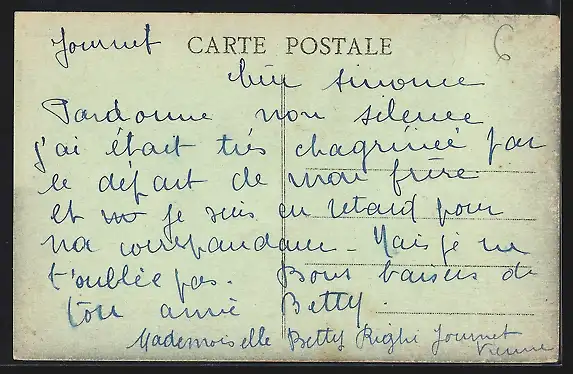 Journet CARTE POSTALE 6
chèr simone
Pardonne mon silence
j'ai était très chagrinée par
le départ de mon frère
et je suis en retard pour
ma correspandance - Mais je ne
t'oublie pas. Bons baisers de
ton amie Betty.
Mademoiselle Betty Righi Journet
Vienne